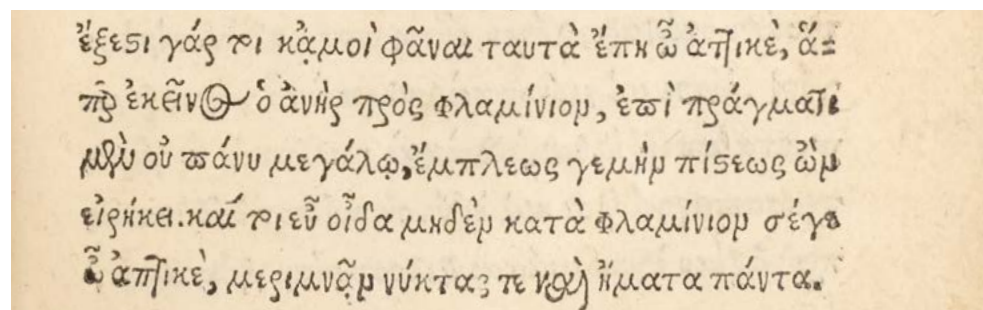 ἔξεστι γάρ τοι κᾀμοὶ φᾶναι ταυτὰ ἔπη ὦ ἀττικὲ, ἅ-
περ ἐκεῖνος ὁ ἀνὴρ πρὸς Φλαμίνιον, ἐπὶ πράγματι
μὲν οὐ πάνυ μεγάλῳ, ἔμπλεως γεμὴν πίστεως ὢν
εἰρήκει. καί τοι εὖ οἶδα μηδὲν κατὰ Φλαμίνιον σέγε
ὦ ἀττικὲ, μεριμνᾷν νύκτας τε καὶ ἤματα πάντα.